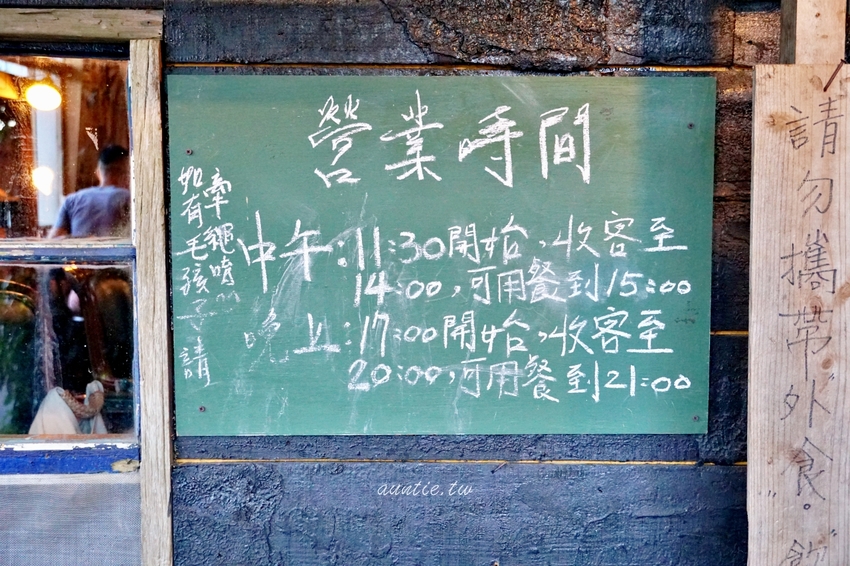 營業時間
中午：11:30開始，收客至
14:00，可用餐到15:00
晚上：17:00開始，收客至
20:00，可用餐到21:00
如有毛孩子請
牽繩噴
請勿攜帶外食。飲
auntie.tw